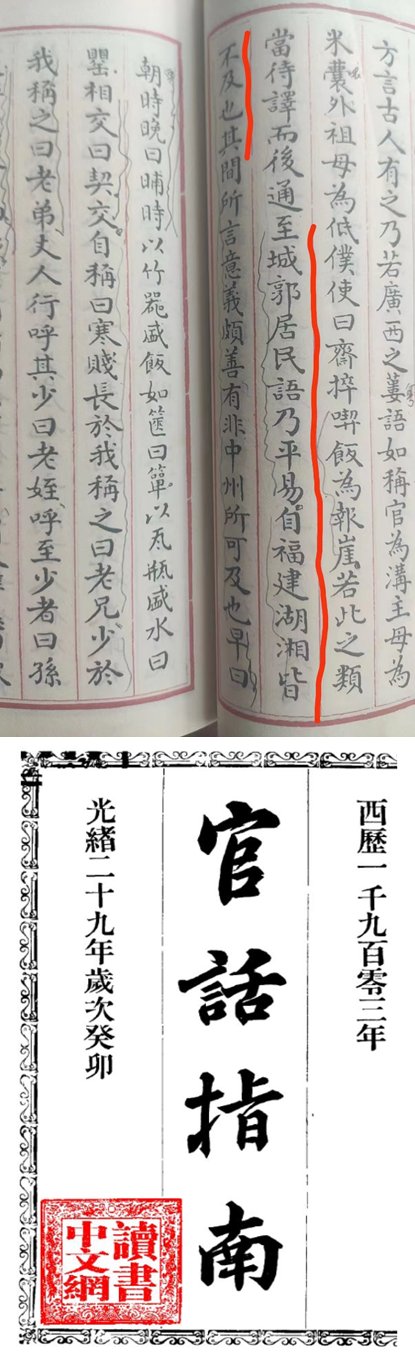 方言古人有之乃若廣西之蔞語如稱官為溝主母為
米囊外祖母為低僕使曰齋捽喫飯為報崖若此之類
當待譯而後通至城郭居民語乃平易自福建湖湘皆
不及也其間所言意義頗善有非中州所可及也早曰
朝時晚曰晡時以竹器盛飯如篋曰簞以瓦瓶盛水曰
罌相交曰契交自稱曰寒賤長於我稱之曰老兄少於
我稱之曰老弟丈人行呼其少曰老姪呼至少者曰孫
西歷一千九百零三年
官話指南
光緒二十九年歲次癸卯
讀書
中文網